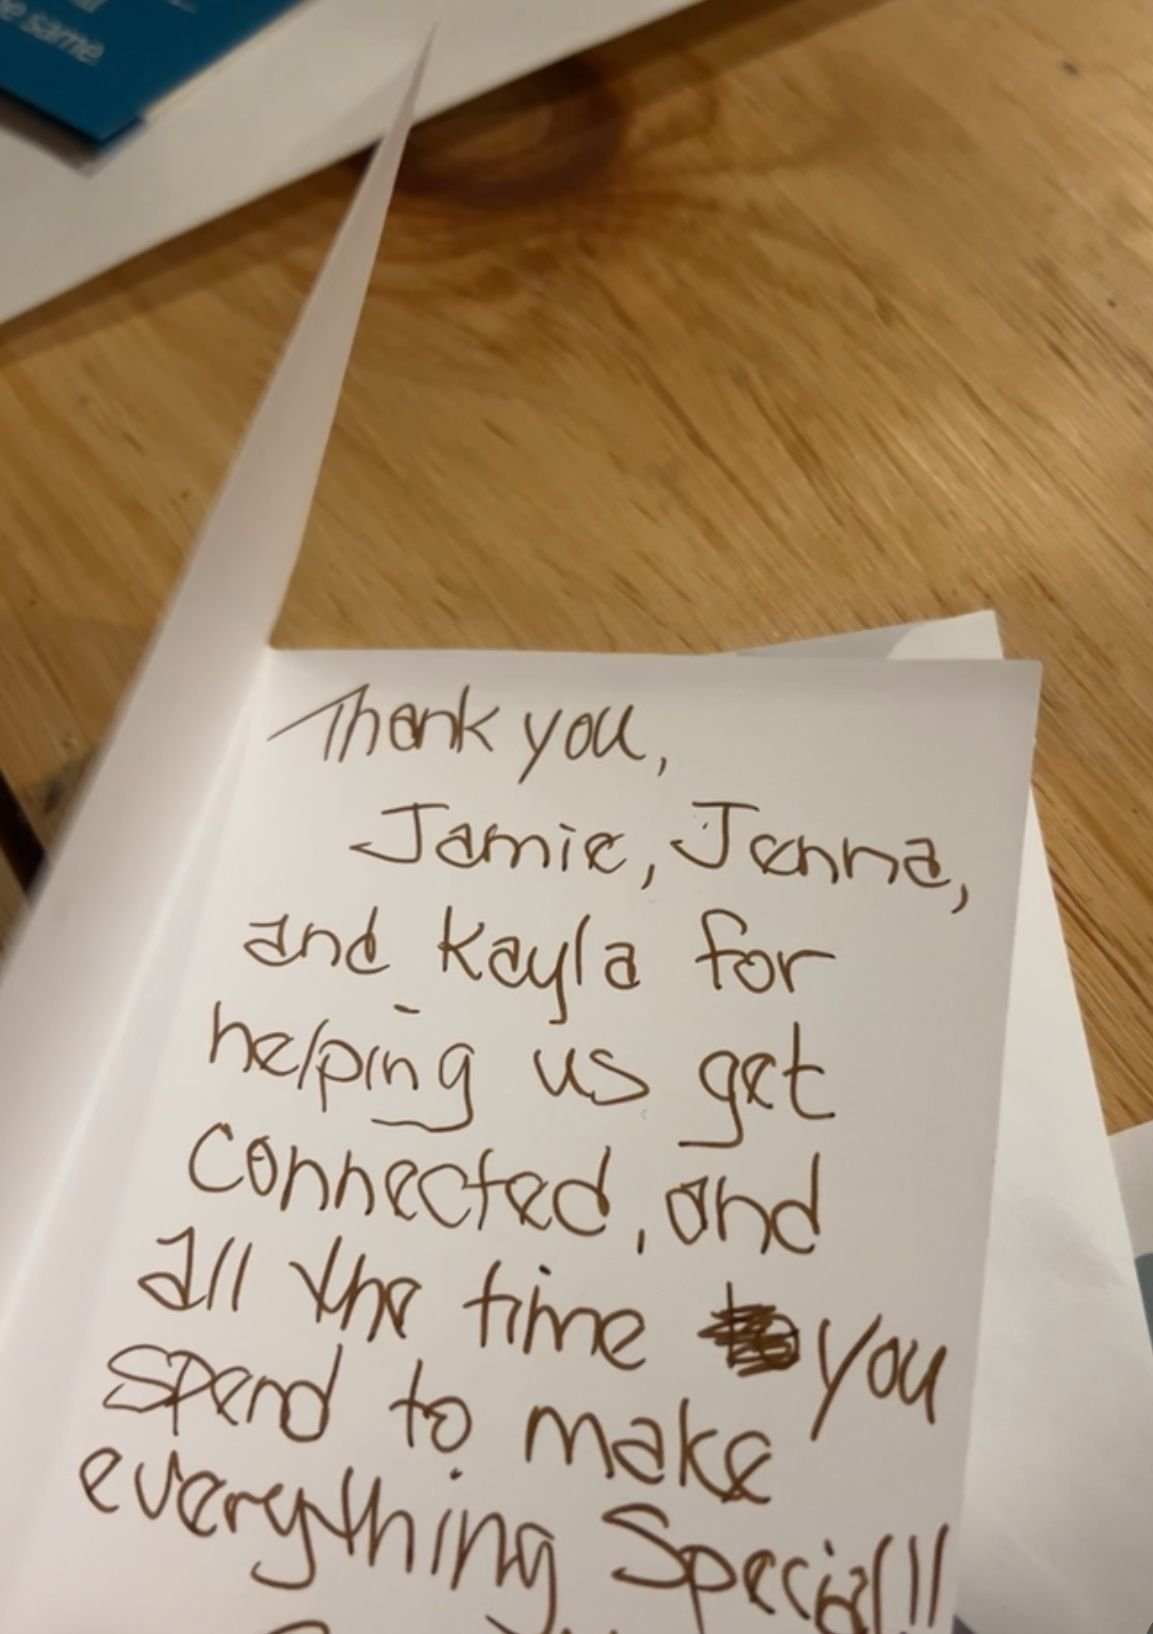 e same
Thank you,
Jamie, Jenna,
and Kayla for
helping us get
connected, and
all the time you
spend to make
everything Special!!